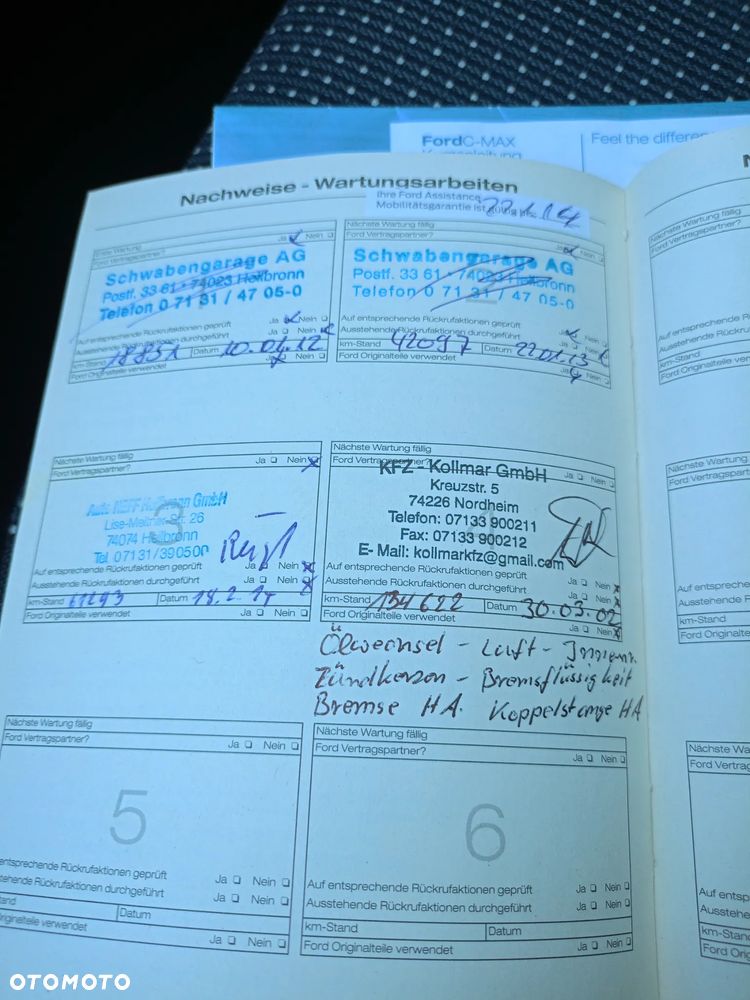 FordC-MAX
Feel the differe
Nachweise - Wartungsarbeiten
Ihre Ford Assistance
Mobilitätsgarantie ist gültig bis:
Erste Wartung
Ja Nein
Ford Vertragspartner?
Schwabengarage AG
Postf. 33 61 · 74023 Heilbronn
Telefon 0 71 31 / 47 05-0
Auf entsprechende Rückrufaktionen geprüft Ja Nein
Ausstehende Rückrufaktionen durchgeführt Ja Nein
km-Stand Datum 10.01.12
Ford Originalteile verwendet Ja Nein
Nächste Wartung fällig
Ford Vertragspartner? Ja Nein
Schwabengarage AG
Postf. 33 61 · 74023 Heilbronn
Telefon 0 71 31 / 47 05-0
Auf entsprechende Rückrufaktionen geprüft Ja Nein
Ausstehende Rückrufaktionen durchgeführt Ja Nein
km-Stand 42097 Datum 22.01.13
Ford Originalteile verwendet Ja Nein
Nächste Wartung fällig
Ford Vertragspartner? Ja Nein
3
Lise-Meitner-Str. 26
74074 Heilbronn
Tel. 07131/390500
Auf entsprechende Rückrufaktionen geprüft Ja Nein
Ausstehende Rückrufaktionen durchgeführt Ja Nein
km-Stand Datum 18.2.14
Ford Originalteile verwendet Ja Nein
Nächste Wartung fällig
Ford Vertragspartner? Ja Nein
KFZ - Kollmar GmbH
Kreuzstr. 5
74226 Nordheim
Telefon: 07133 900211
Fax: 07133 900212
E- Mail: kollmarkfz@gmail.com
Auf entsprechende Rückrufaktionen geprüft Ja Nein
Ausstehende Rückrufaktionen durchgeführt Ja Nein
km-Stand 134622 Datum 30.03.02
Ford Originalteile verwendet Ja Nein
Ölwechsel - Luft - Innenr.
Zündkerzen - Bremsflüssigkeit
Bremse HA. Koppelstange HA
Nächste Wartung fällig
Ford Vertragspartner? Ja Nein
5
entsprechende Rückrufaktionen geprüft Ja Nein
stehende Rückrufaktionen durchgeführt Ja Nein
tand Datum
riginalteile verwendet Ja Nein
Nächste Wartung fällig
Ford Vertragspartner? Ja Nein
6
Auf entsprechende Rückrufaktionen geprüft Ja Nein
Ausstehende Rückrufaktionen durchgeführt Ja Nein
km-Stand Datum
Ford Originalteile verwendet Ja Nein
N
Nächste Wartung fällig
Ford Vertragspartner?
Auf entsprechende
Ausstehende Rü
km-Stand
Ford Originalteile
Nächste Wartung
Ford Vertragspar
Auf entsprechen
Ausstehende R
km-Stand
Ford Originalte
Nächste Wa
Ford Vertrag
Auf ents
Aussteh
km-Stan
Ford Ori
OTOMOTO